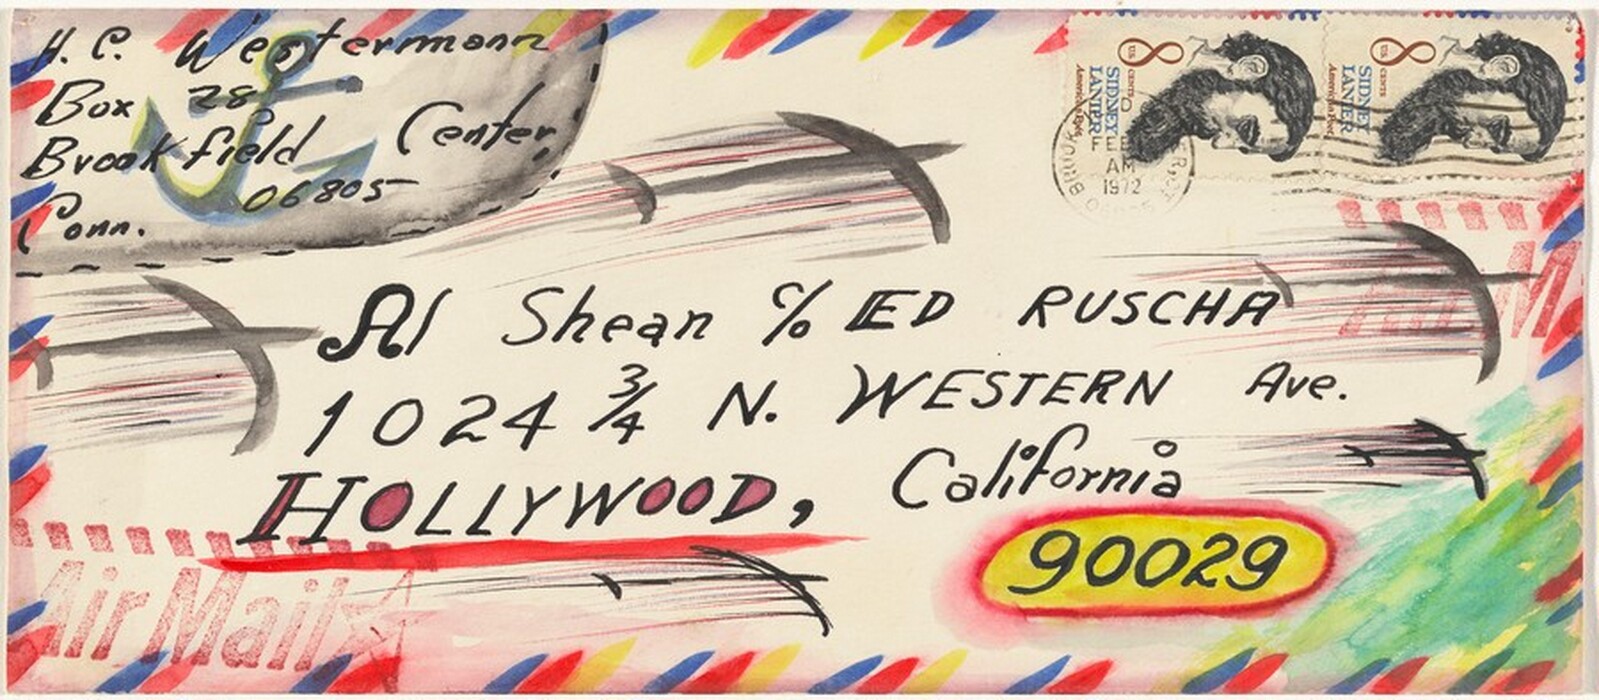 H. C. Westermann
Box 28
Brookfield Center,
Conn. 06805
8 US CENTS
SIDNEY
LANIER
American Poet
8 US CENTS
SIDNEY
LANIER
American Poet
FEB
AM
1972
Al Shean c/o ED RUSCHA
1024 3/4 N. WESTERN Ave.
HOLLYWOOD, California
90029
Air Mail